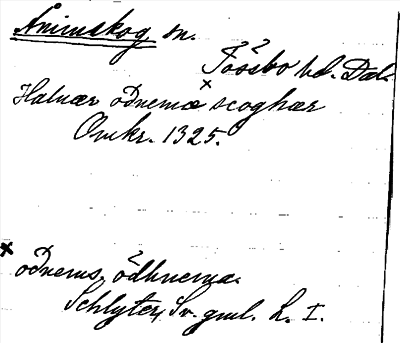 Animskog, sn.
Tössbo hd. Dal.
Halnær oðnema x scoghær
Omkr. 1325.
x oðnems, ödhnema.
Schlyter, Sv. gml. L. I.